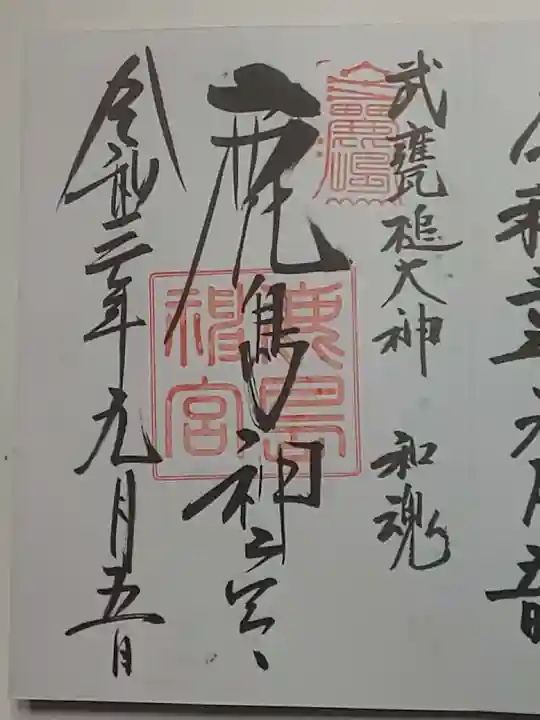 武甕槌大神 和魂
鹿島神宮
令和三年九月五日
鹿島
神宮